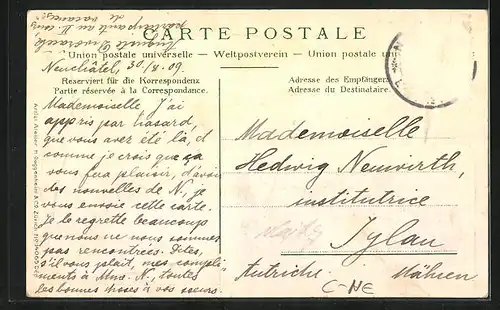 CARTE POSTALE
Union postale universelle – Weltpostverein – Union postale
Reserviert für die Korrespondenz
Partie réservée à la Correspondance.
Adresse des Empfängers
Adresse du Destinataire.
Neuchâtel, 30./8. 09.
Mademoiselle J'ai
appris par hasard,
que vous avez été là, et
comme je crois que ça
vous fera plaisir, d'avoir
des nouvelles de N, je
vous envoie cette carte.
Je le regrette beaucoup
que nous ne nous sommes
pas rencontrées. Dites,
s'il vous plaît, mes compli-
ments à Mme. N., toutes
les bonnes choses à vos sœurs.
participante au II cours
de vacances
Mademoiselle
Hedwig Neuwirth,
institutrice
Iglau
Autriche. Mähren.
C-NE